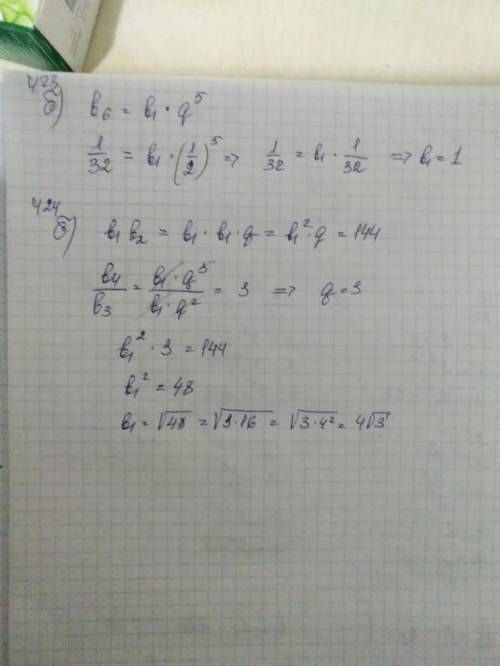 423
б) b₆ = b₁ · q⁵
1/32 = b₁ · (1/2)⁵ => 1/32 = b₁ · 1/32 => b₁ = 1
424
б) b₁ b₂ = b₁ · b₁ · q = b₁² · q = 144
b₄/b₃ = b₁ · q⁵/b₁ · q² = 3 => q = 3
b₁² · 3 = 144
b₁² = 48
b₁ = √48 = √3·16 = √3·4² = 4√3